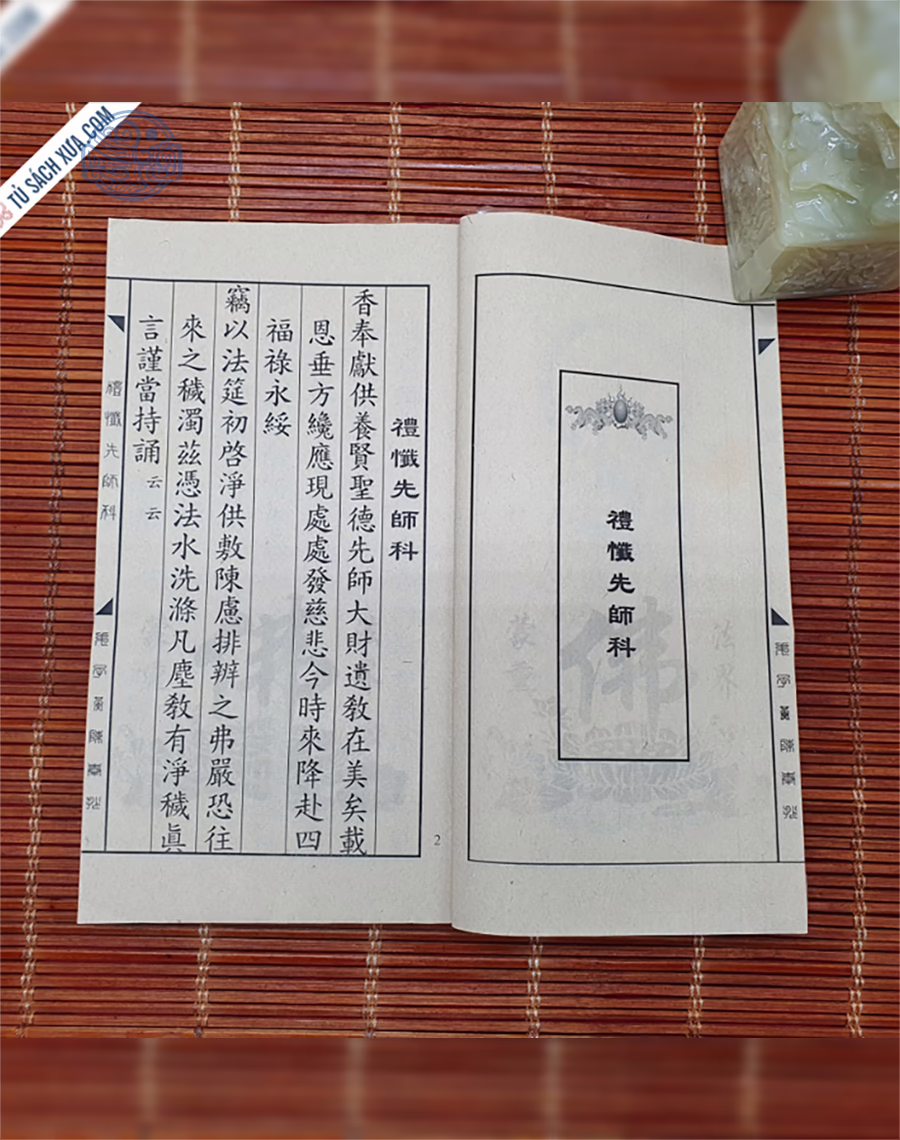 TỦ SÁCH XƯA.COM
禮懺先師科
禮懺先師科
香奉獻供養賢聖德先師大財遺敎在美矣載
恩垂方纔應現處處發慈悲今時來降赴四
福祿永綏
竊以法筵初啓淨供敷陳慮排辨之弗嚴恐往
來之穢濁茲憑法水洗滌凡塵敎有淨穢眞
言謹當持誦云云
禮懺先師科
2